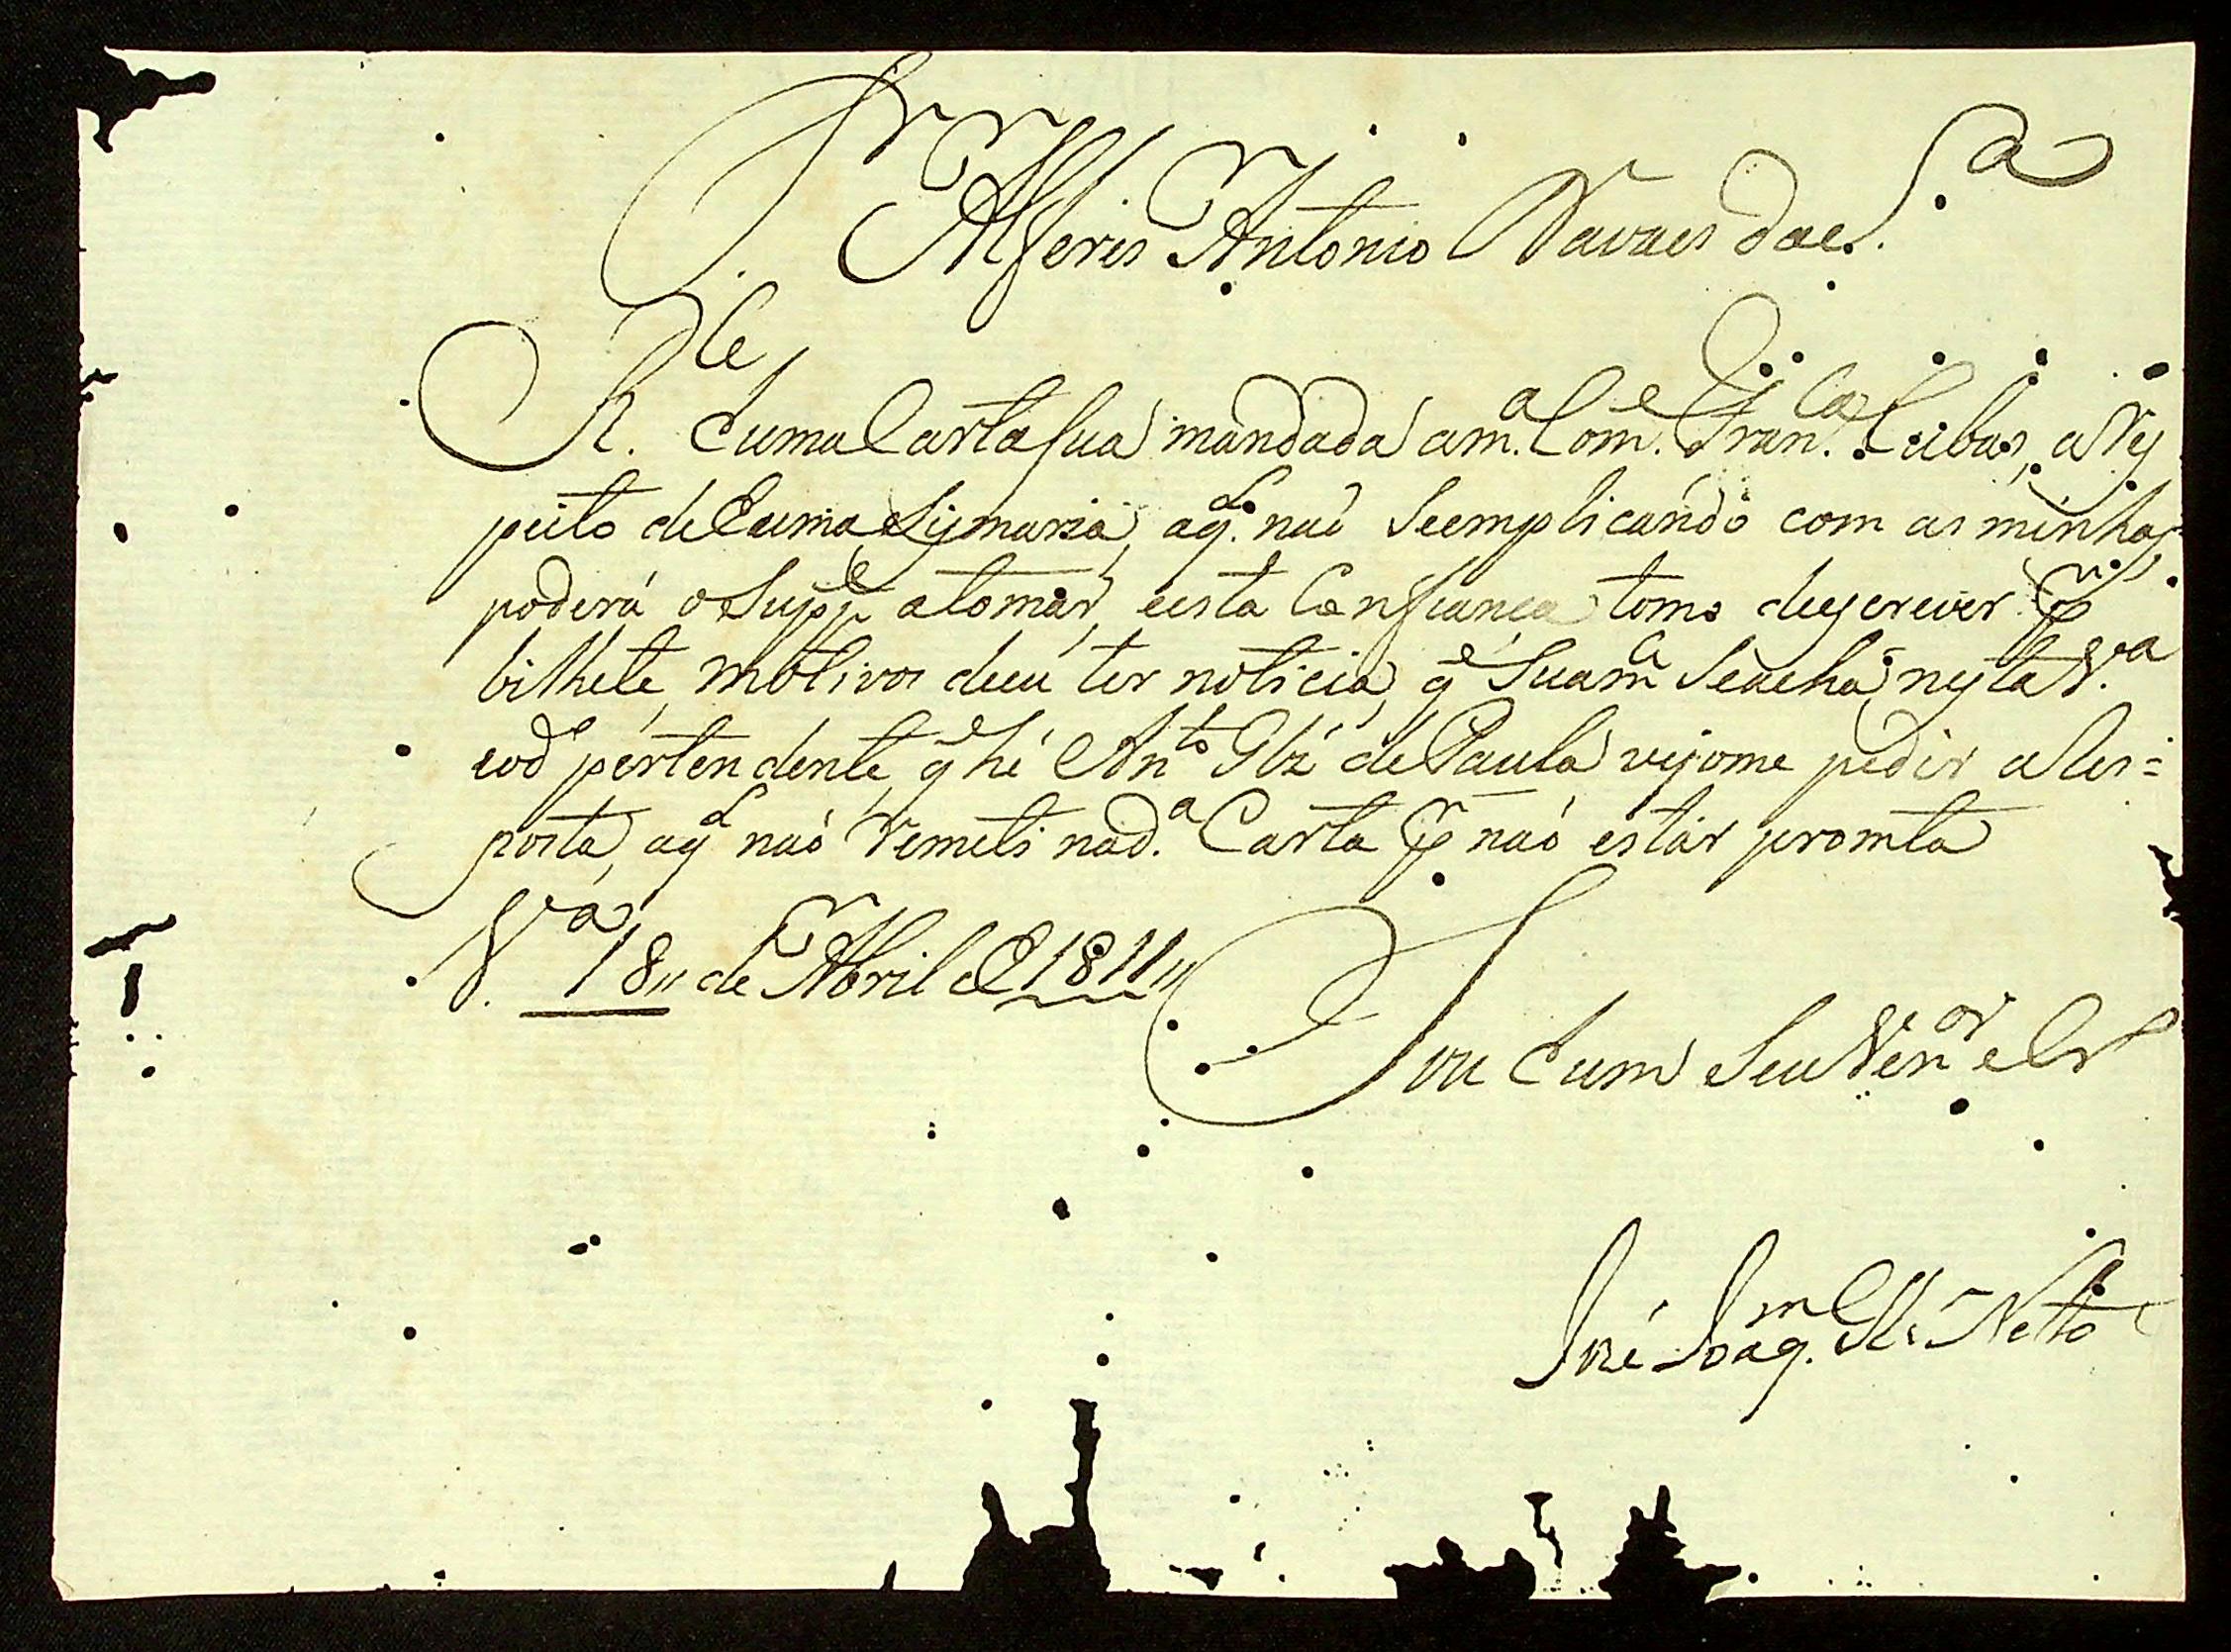 Sr. Alferis Antonio Navaes daes. Sa
Rle. huma Carta Sua mandada am.a Come. Fran.ca Cubas, aRes
peito de huma Sismaria, aq.l naó Seemplicando com as minhas,
poderá o Suppe. atomar, eesta Confiança tomo deescrever pr.
bilhete, motivos deeu ter noticia, qe Suama Seacha nesta Va.
eode. pertendente, qe hé Anto. Glz' de Paula veiome pedir a Res=
posta, aql naó Remeti nad.a Carta pr. naó estár promta
Va. 18,, de Abril de 1811,,
Sou hum Seu Venor. e Cr.
José Joaqm. Neto